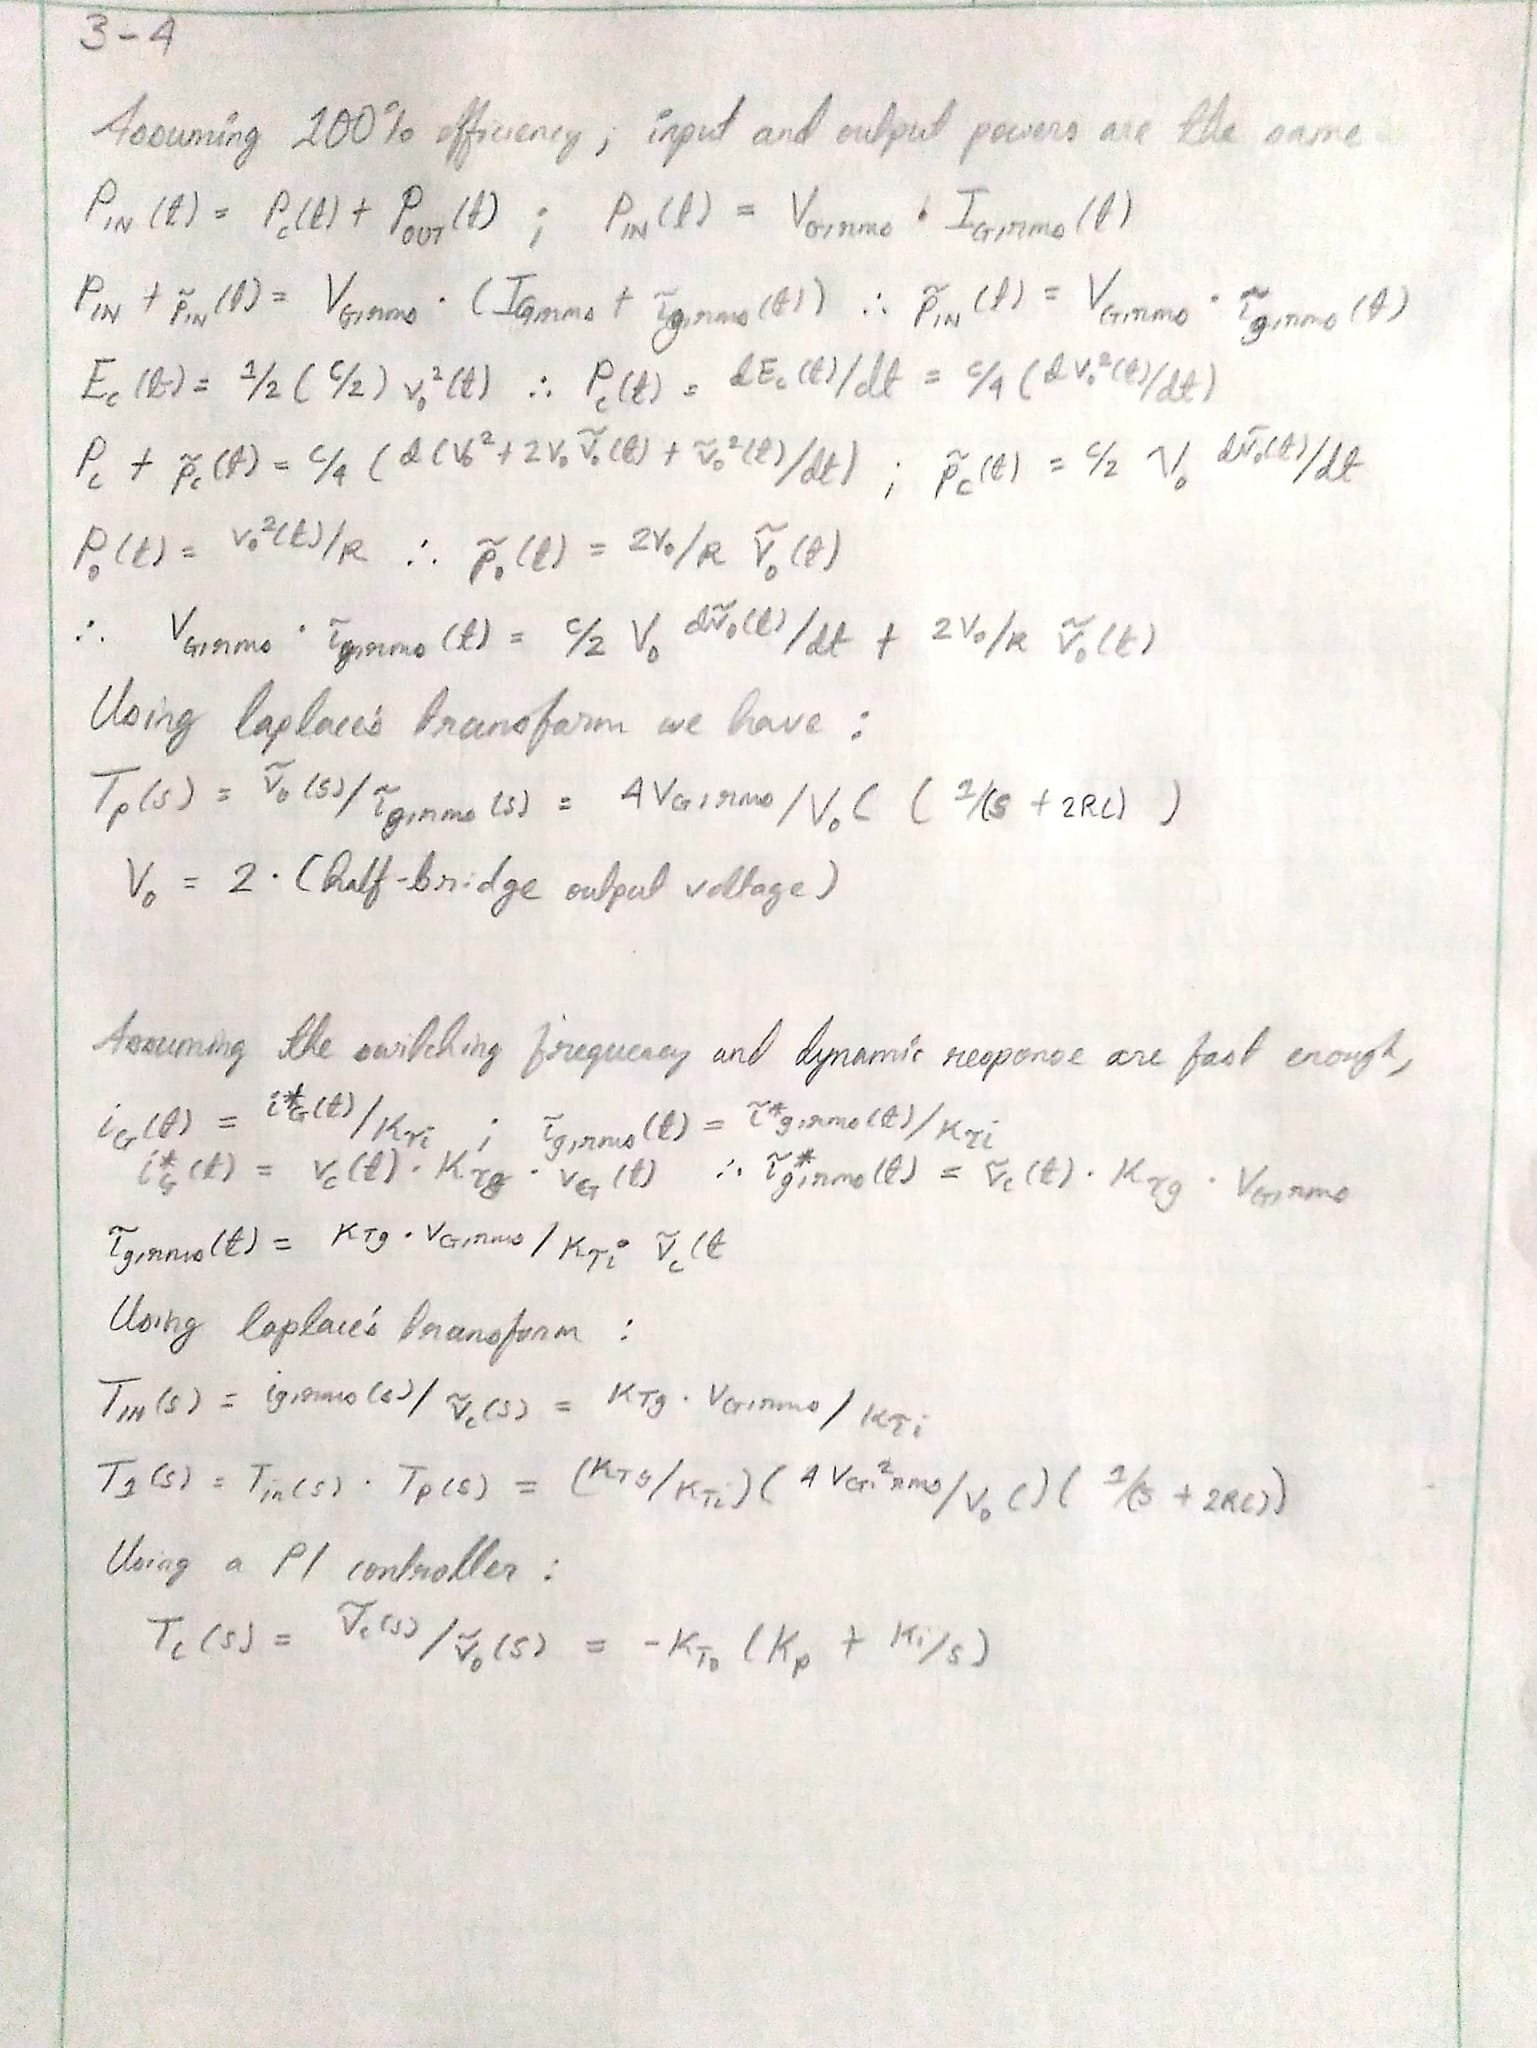 3-4
Assuming 100% efficiency; input and output powers are the same
P_IN(t) = P_c(t) + P_OUT(t) ; P_IN(t) = V_G,rms · I_G,rms(t)
P_IN + p̃_IN(t) = V_G,rms · (I_G,rms + ĩ_g,rms(t)) ∴ p̃_IN(t) = V_G,rms · ĩ_g,rms(t)
E_c(t) = 1/2 (C/2) v_o²(t) ∴ P_c(t) = dE_c(t)/dt = C/4 (dv_o²(t)/dt)
P_c + p̃_c(t) = C/4 (d(V_o² + 2V_o ṽ_o(t) + ṽ_o²(t)/dt) ; p̃_c(t) = C/2 V_o dṽ_o(t)/dt
P_o(t) = v_o²(t)/R ∴ p̃_o(t) = 2V_o/R ṽ_o(t)
∴ V_G,rms · ĩ_g,rms(t) = C/2 V_o dṽ_o(t)/dt + 2V_o/R ṽ_o(t)
Using laplace's transform we have :
T_p(s) = ṽ_o(s)/ĩ_g,rms(s) = 4V_G,rms/V_o C (1/(s + 2RC) )
V_o = 2 · (half-bridge output voltage)
Assuming the switching frequency and dynamic response are fast enough,
i_G(t) = i*_G(t)/K_Ti ; ĩ_g,rms(t) = ĩ*_g,rms(t)/K_Ti
i*_G(t) = v_c(t) · K_Tg · v_G(t) ∴ ĩ*_g,rms(t) = ṽ_c(t) · K_Tg · V_G,rms
ĩ_g,rms(t) = K_Tg · V_G,rms / K_Ti ṽ_c(t
Using laplace's transform :
T_IN(s) = i_g,rms(s)/ṽ_c(s) = K_Tg · V_G,rms / K_Ti
T_1(s) = T_in(s) · T_p(s) = (K_Tg/K_Ti)(4V_G,²rms/V_o C)(1/(s + 2RC))
Using a PI controller :
T_c(s) = ṽ_c(s)/ṽ_o(s) = -K_To (K_p + K_i/s)